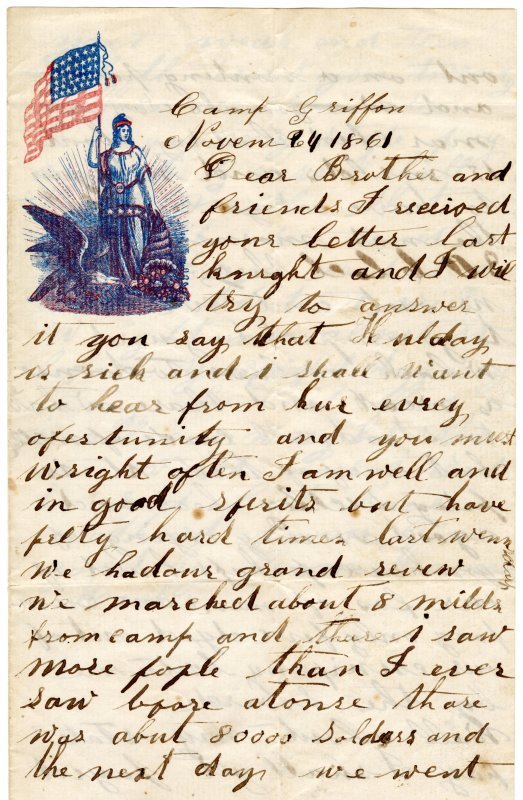 Camp Griffon
Novem 24 1861
Dear Brother and
friends I received
your letter last
knight and I will
try to answer
it you say that Hulday
is sick and i shall want
to hear from hur evrey
ofertunity and you must
wright often I am well and
in good spirits but have
prety hard times last wens
we had our grand revew
We marched about 8 milds
from camp and thare i saw
more pople than I ever
saw boore atonse thare
was abut 80000 Solders and
the next day we went